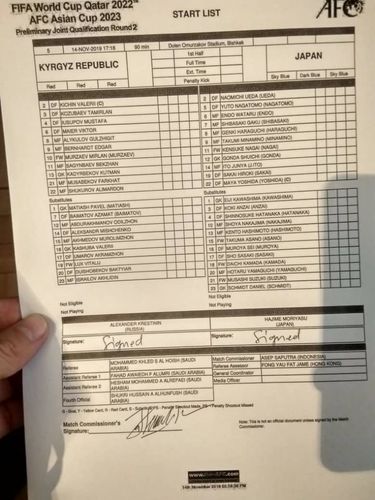 FIFA World Cup Qatar 2022™
AFC Asian Cup 2023
Preliminary Joint Qualification Round 2
START LIST
AFC
5 14-NOV-2019 17:15 90 min Dolen Omurzakov Stadium, Bishkek
KYRGYZ REPUBLIC
1st Half
Full Time
Ext. Time
Penalty Kick
JAPAN
Red Red Red
Sky Blue Dark Blue Sky Blue
2 DF KICHIN VALERII (C)
3 DF KOZUBAEV TAMIRLAN
4 DF IUSUPOV MUSTAFA
6 DF MAIER VIKTOR
8 MF ALYKULOV GULZHIGIT
9 MF BERNHARDT EDGAR
10 FW MURZAEV MIRLAN (MURZAEV)
11 MF SAGYNBAEV BEKZHAN
13 GK KADYRBEKOV KUTMAN
21 MF MUSABEKOV FARKHAT
22 MF SHUKUROV ALIMARDON
2 DF NAOMICHI UEDA (UEDA)
5 DF YUTO NAGATOMO (NAGATOMO)
6 MF ENDO WATARU (ENDO)
7 MF SHIBASAKI GAKU (SHIBASAKI)
8 MF GENKI HARAGUCHI (HARAGUCHI)
9 MF TAKUMI MINAMINO (MINAMINO)
11 FW KENSUKE NAGAI (NAGAI)
12 GK GONDA SHUICHI (GONDA)
14 MF ITO JUNYA (J.ITO)
19 DF SAKAI HIROKI (SAKAI)
22 DF MAYA YOSHIDA (YOSHIDA) (C)
Substitutes
1 GK MATIASH PAVEL (MATIASH)
7 DF BAIMATOV AZAMAT (BAIMATOV)
12 MF ABDURAKHMANOV ODILZHON
14 DF ALEKSANDR MISHCHENKO
15 MF AKHMEDOV MUROLIMZHON
16 GK KASHUBA VALERII
17 DF UMAROV AKRAMZHON
19 FW LUX VITALIJ
20 DF DUISHOBEKOV BAKTYIAR
23 MF ISRAILOV AKHLIDIN
Substitutes
1 GK EIJI KAWASHIMA (KAWASHIMA)
3 DF KOKI ANZAI (ANZAI)
4 DF SHINNOSUKE HATANAKA (HATANAKA)
10 MF SHOYA NAKAJIMA (NAKAJIMA)
13 MF KENTO HASHIMOTO (HASHIMOTO)
15 FW TAKUMA ASANO (ASANO)
16 DF MUROYA SEI (MUROYA)
17 DF SHO SASAKI (SASAKI)
18 FW DAICHI KAMADA (KAMADA)
20 MF HOTARU YAMAGUCHI (YAMAGUCHI)
21 FW MUSASHI SUZUKI (SUZUKI)
23 GK SCHMIDT DANIEL (SCHMIDT)
Not Eligible
Not Eligible
Not Playing
Not Playing
ALEXANDER KRESTININ
(RUSSIA)
HAJIME MORIYASU
(JAPAN)
Signature: Signed
Signature: Signed
Referee MOHAMMED KHLED S AL HOISH (SAUDI ARABIA)
Assistant Referee 1 FAHAD AWAIEDH F ALUMRI (SAUDI ARABIA)
Assistant Referee 2 HESHAM MOHAMMED A ALREFADI (SAUDI ARABIA)
Fourth Official SHUKRI HUSSAIN A ALHUNFUSH (SAUDI ARABIA)
Match Commissioner ASEP SAPUTRA (INDONESIA)
Referee Assessor FONG YAU FAT JAME (HONG KONG)
General Coordinator
Media Officer
G - Goal, Y - Yellow Card, R - Red Card, S - Substitute, Penalty Shootout Made, Penalty Shootout Missed
Match Commissioner's
Signature:
Note: This is not an official document unless signed by the Match Commissioner.
14th November 2019